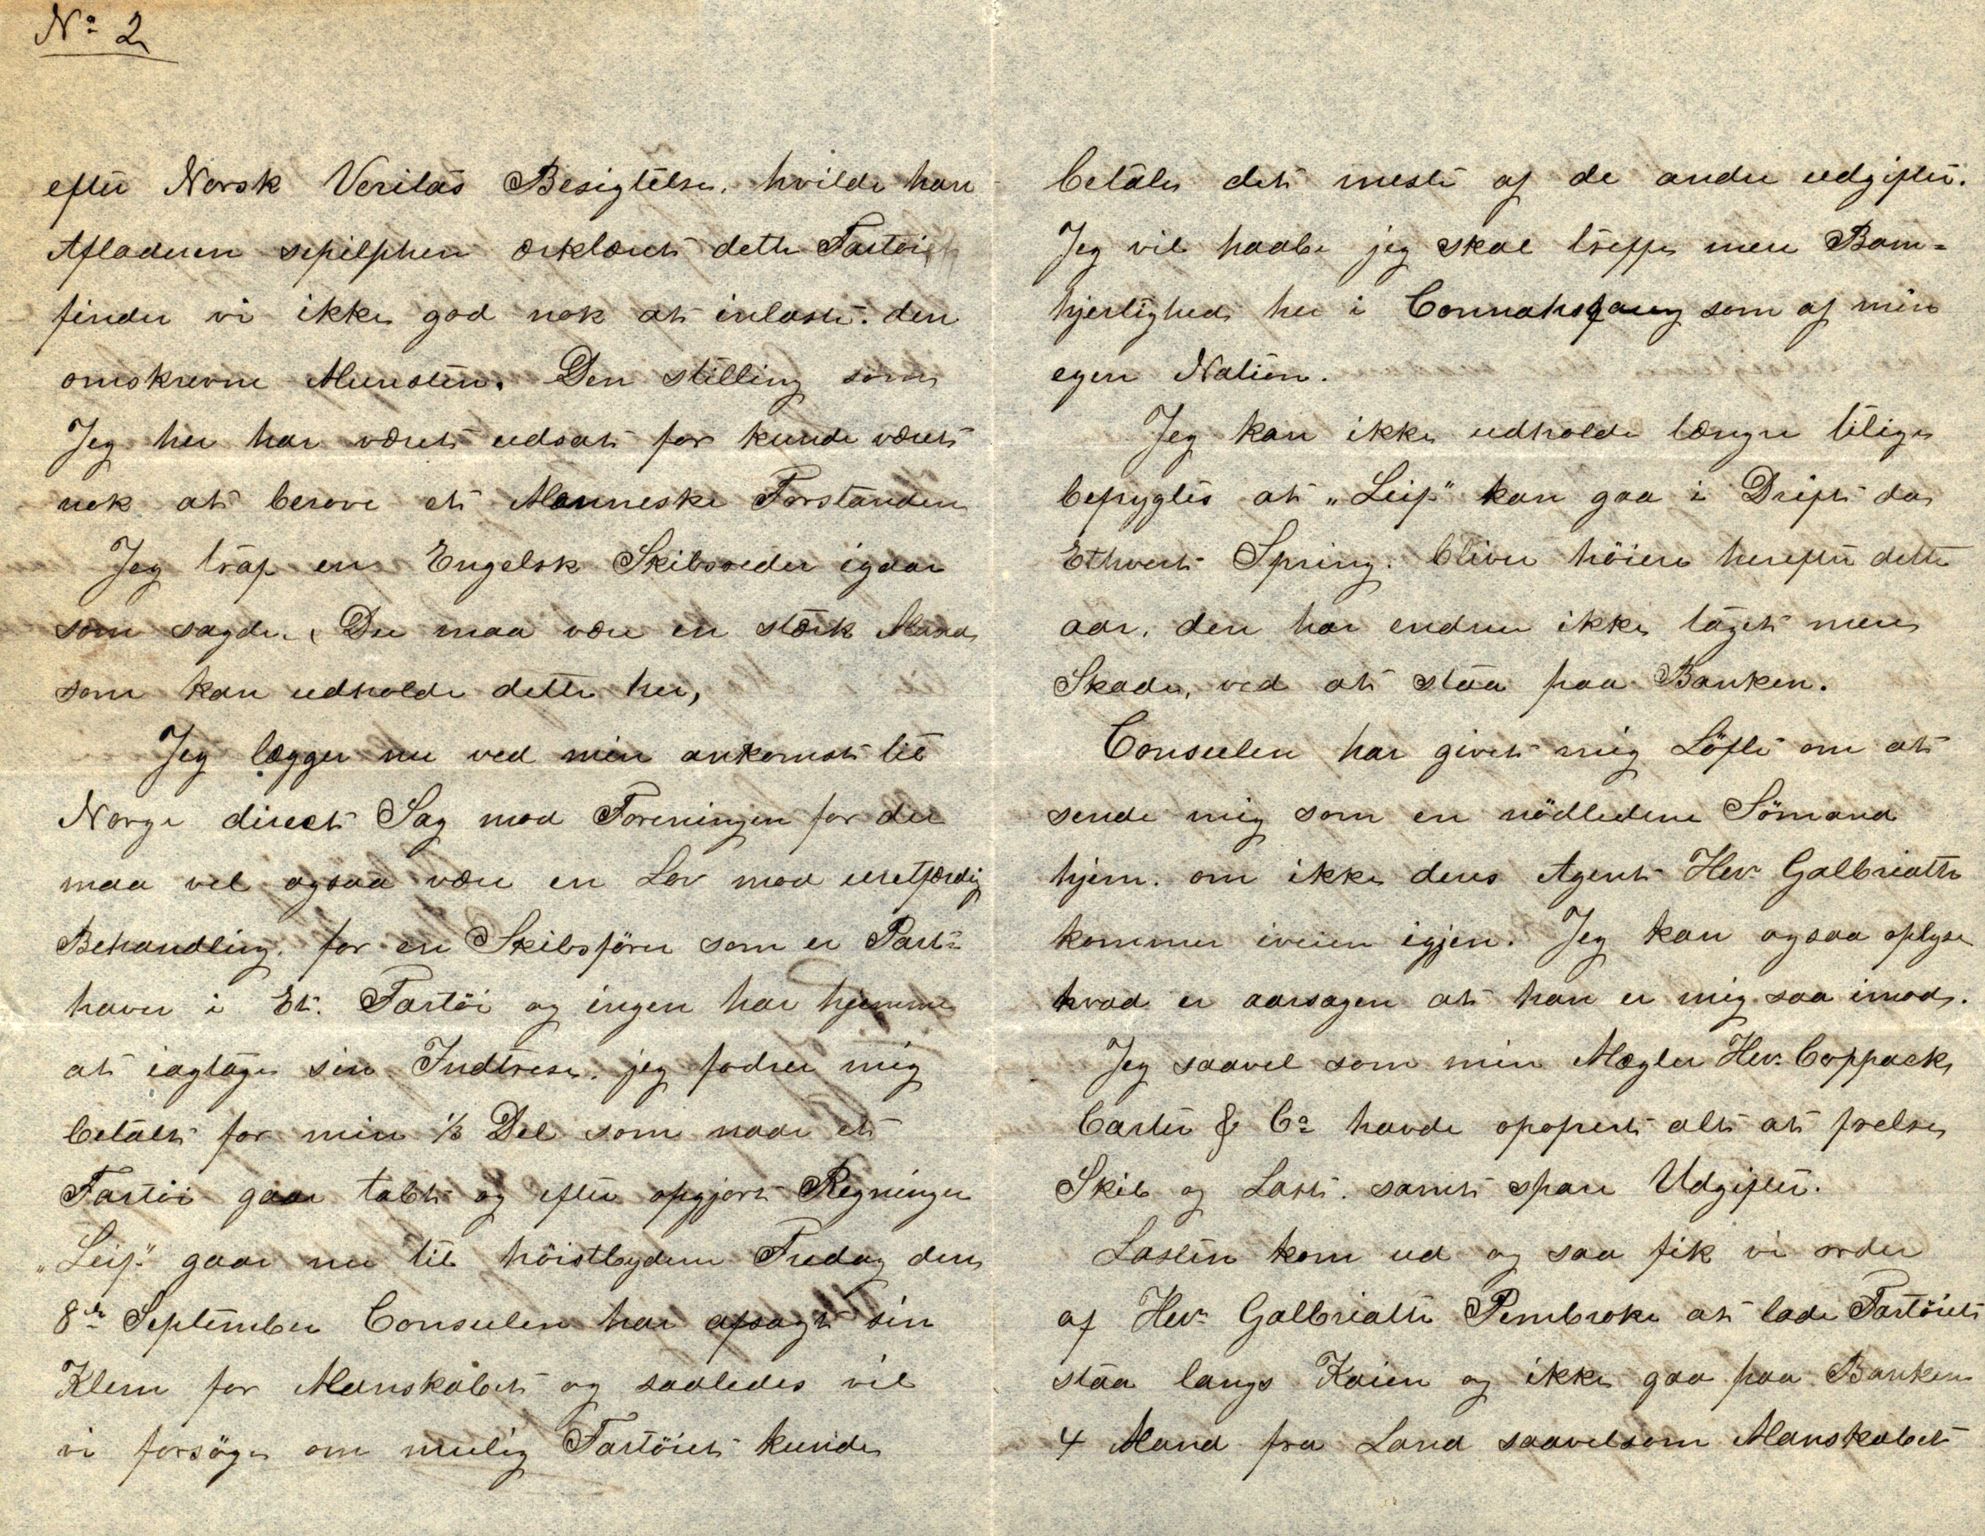 No 2
efter Norsk Veritas Besigtelse. hvilde han
Afladeren ærklæret dette Fartøi
finder vi ikke god nok at inlaste. den
omskrevne Mursten. Den stilling som
Jeg her har været udsat for kunde været
nok at berøve et Menneske Forstanden
Jeg traf en Engelsk Skibsreder igaar
som sagde, Du maa være en stærk Mand
som kan udholde dette her,
Jeg lægger nu ved min ankomst til
Norge direct Sag mod Foreningen for der
maa vel ogsaa være en Lov mod uretfærdig
Behandling. for en Skibsfører som er Part-
haver i Et. Fartøi og ingen har hjemme
at iagtage sin Indtrese. jeg fodrer mig
betalt for min 1/3 Del som naar et
Fartøi gaar tabt og efter opgjort Regninger
"Leif" gaar nu til høistbydene Fredag den
8de September Consulen har afsagt sin
Klem for Manskabet og saaledes vil
vi forsøge om mulig Fartøiet kunde
betale det meste af de andre udgifter.
Jeg vil haabe jeg skal træffe mere Barm-
hjertighed her i Connahsquay som af min
egen Nation.
Jeg kan ikke udholde længre
at "Leif" kan gaa i Drift da
Ethvert Spring. bliver høiere herefter dette
aar. den har endnu ikke taget mere
Skade, ved at staa paa Banken.
Consulen har givet mig Løfte om at
sende mig som en nødledene Sømand
hjem. om ikke deres Agent Herr Galbriath
kommer iveien igjen. Jeg kan ogsaa oplyse
hvad er aarsagen at han er mig saa imod.
Jeg saavel som min Mægler Herr Coppack
Carter & Co havde opofret alt at frelse
Skib og Last. samt spare Udgifter.
Lasten kom ud og saa fik vi order
af Herr Galbriath Pembroke at lade Fartøiet
staa langs Kaien og ikke gaa paa Banken
4 Mand fra Land saavelsom Manskabet